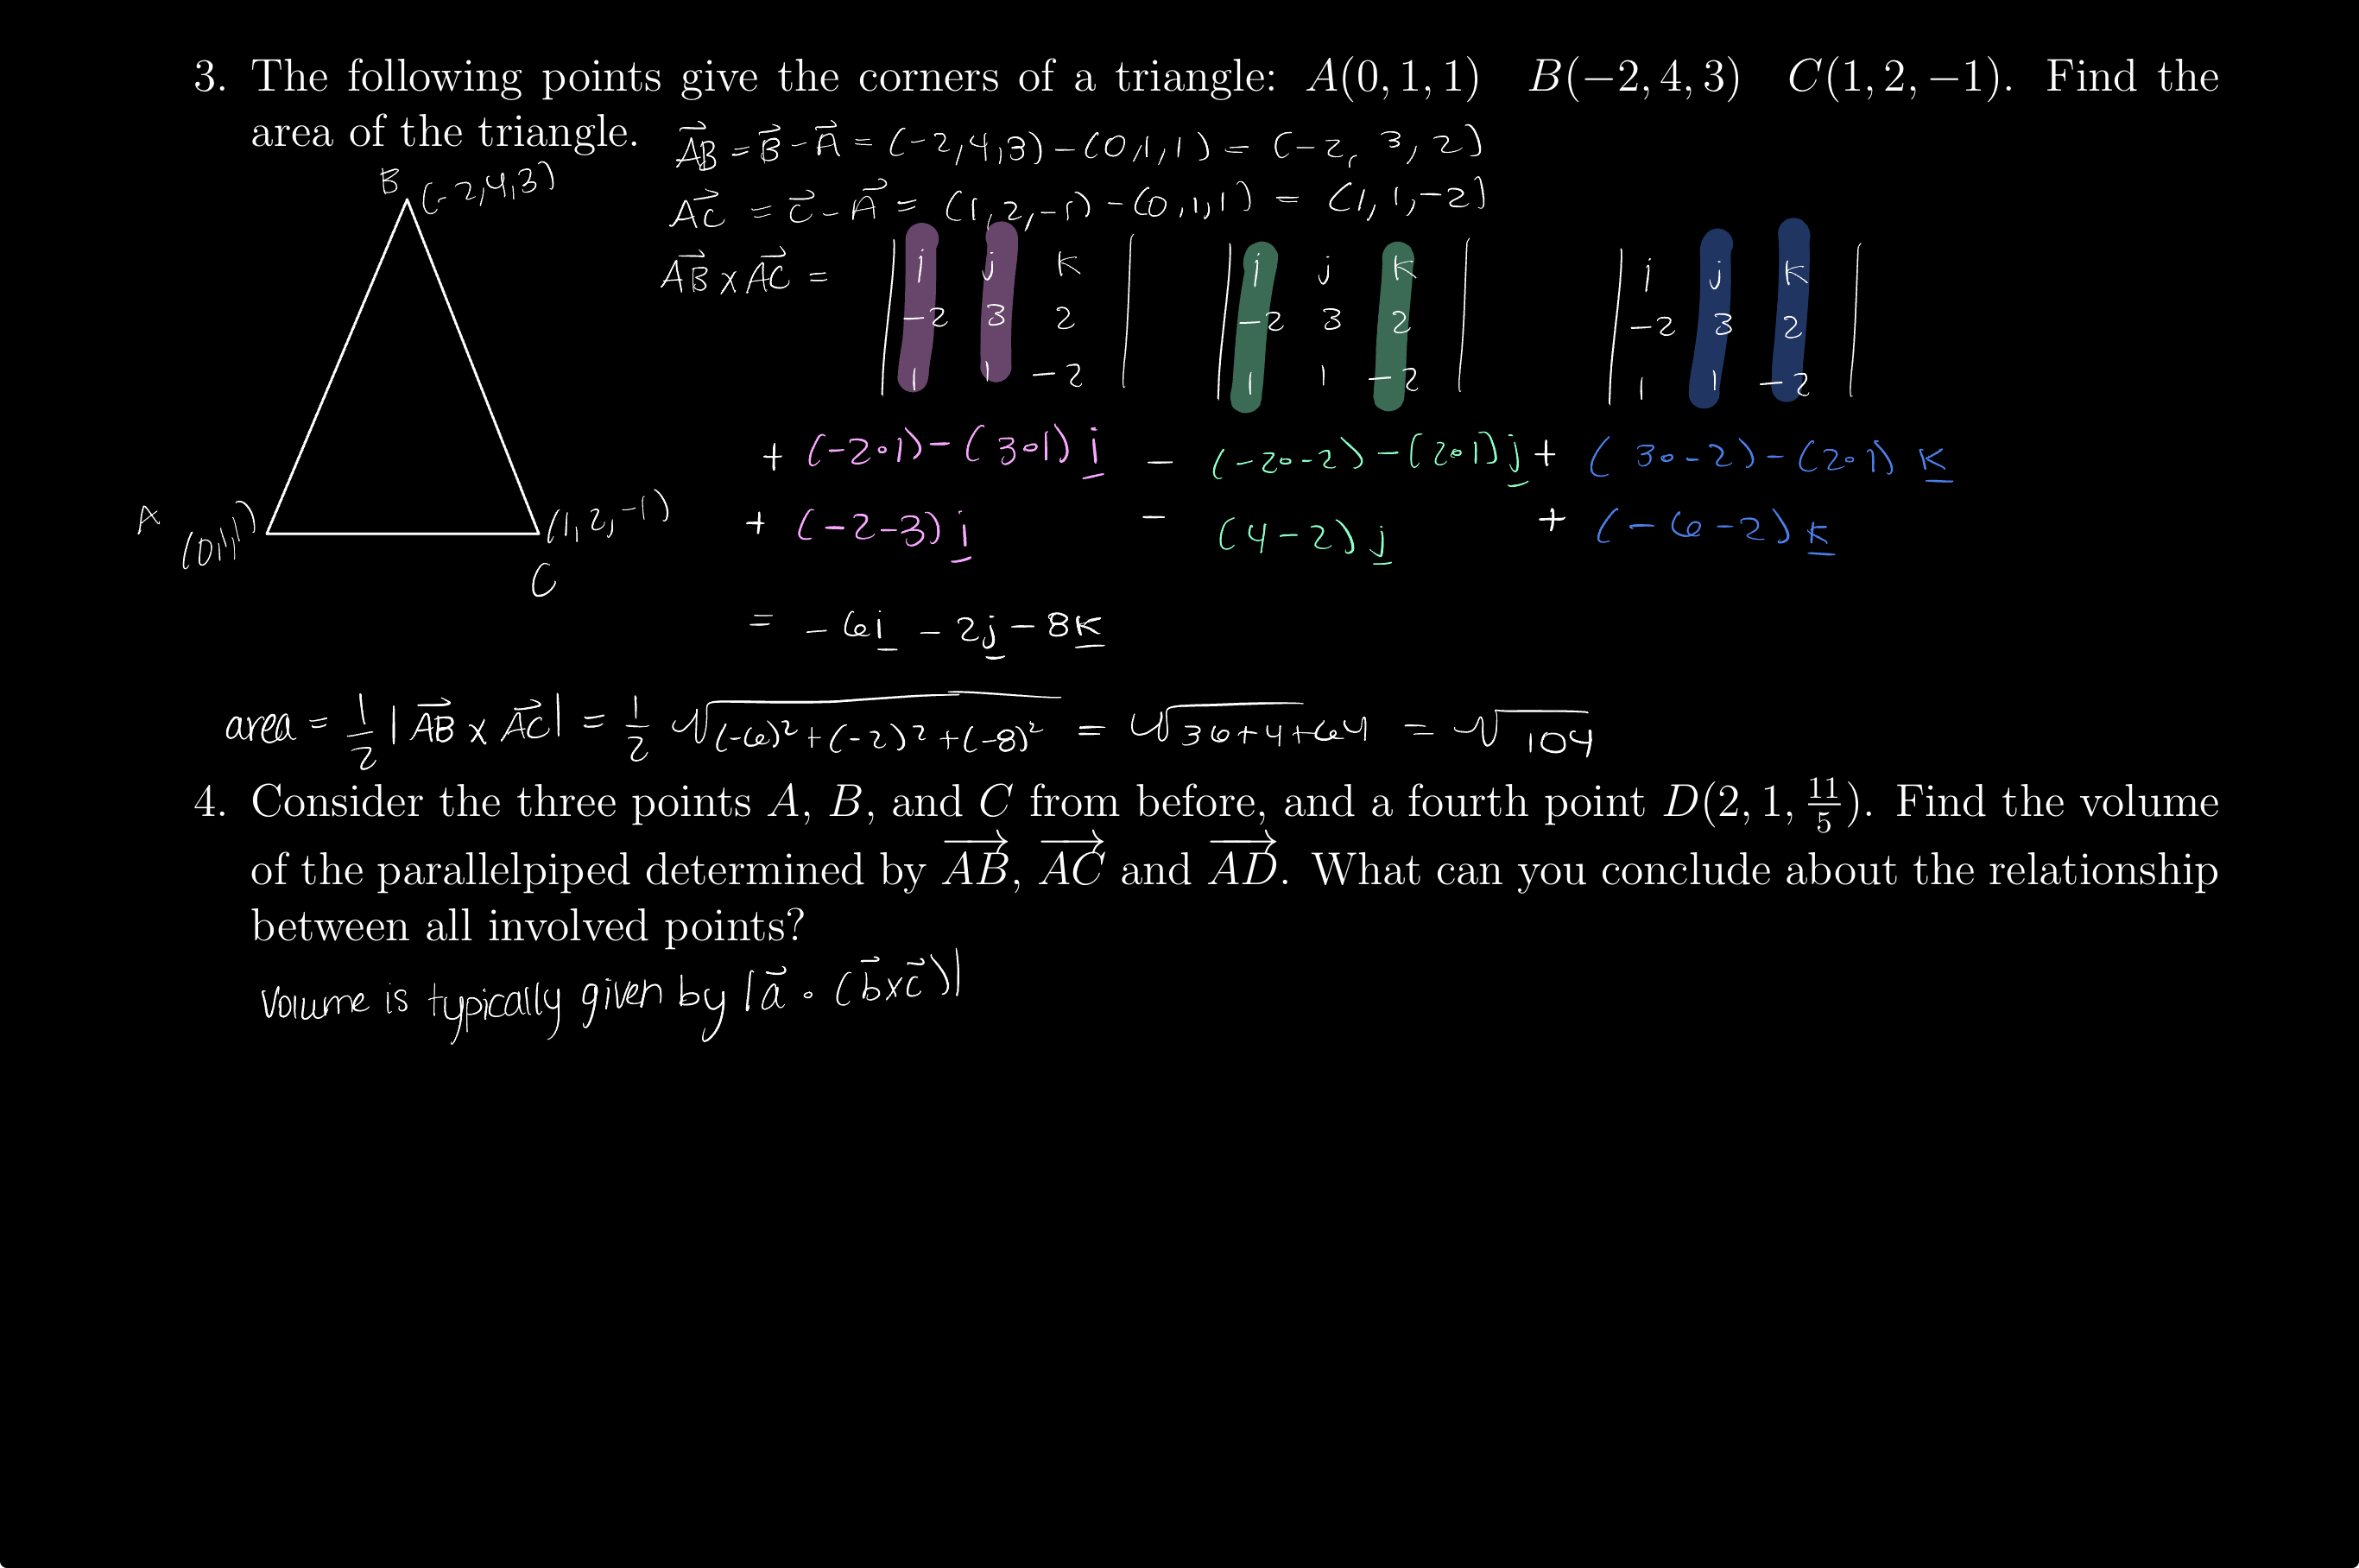 3. The following points give the corners of a triangle: A(0, 1, 1) B(−2, 4, 3) C(1, 2, −1). Find the
area of the triangle.
AB = B - A = (-2,4,3) - (0,1,1) = (-2, 3, 2)
B (-2,4,3)
AC = C - A = (1,2,-1) - (0,1,1) = (1,1,-2)
AB x AC = | i j k | | i j k | | i j k |
-2 3 2 -2 3 2 -2 3 2
1 1 -2 1 1 -2 1 1 -2
+ (-2∘1) - (3∘1) i - (-2∘-2) - (2∘1) j + (3∘-2) - (2∘1) k
A (0,1,1) (1,2,-1)
C
+ (-2-3) i - (4-2) j + (-6-2) k
= -6i - 2j - 8k
area = 1/2 |AB x AC| = 1/2 √(-6)² + (-2)² + (-8)² = √36+4+64 = √104
4. Consider the three points A, B, and C from before, and a fourth point D(2, 1, 11/5). Find the volume
of the parallelpiped determined by AB, AC and AD. What can you conclude about the relationship
between all involved points?
Volume is typically given by |a ∘ (b x c)|